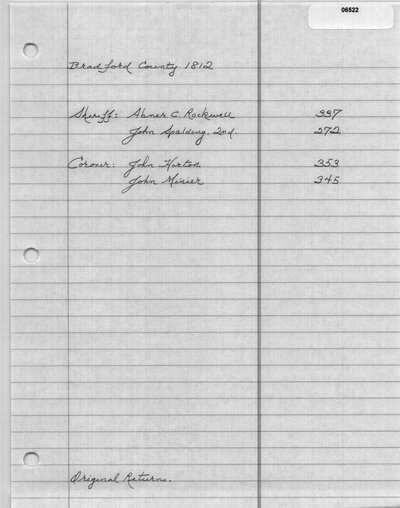 06522
Bradford County 1812
Sheriff: Abner C. Rockwell 337
John Spalding, 2nd. 272
Coroner: John Horton 353
John Minier 345
Original Returns.